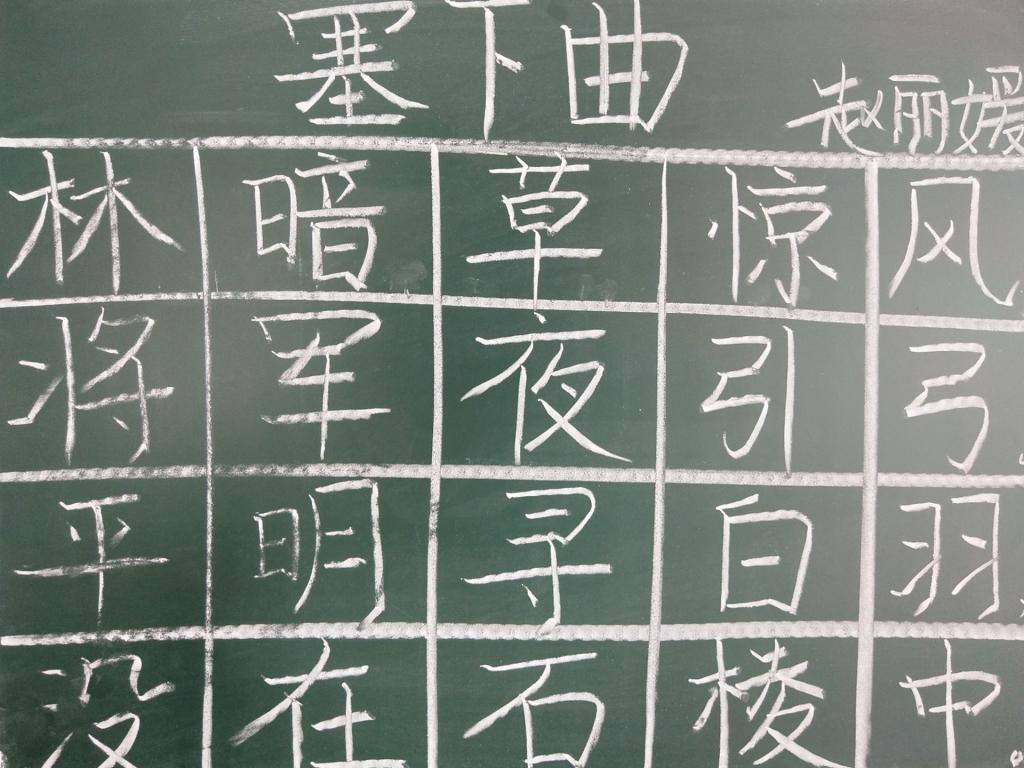 塞下曲
赵丽媛
林暗草惊风
将军夜引弓
平明寻白羽
没在石棱中